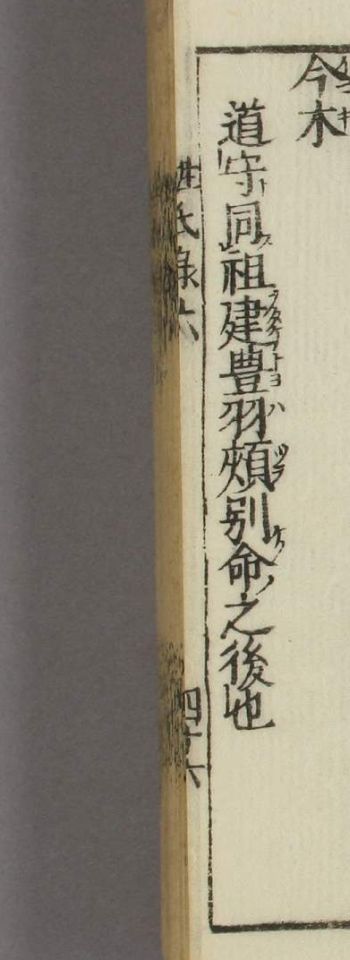 今木
道守同祖建豊羽頬別命之後也
姓氏録六
四十六